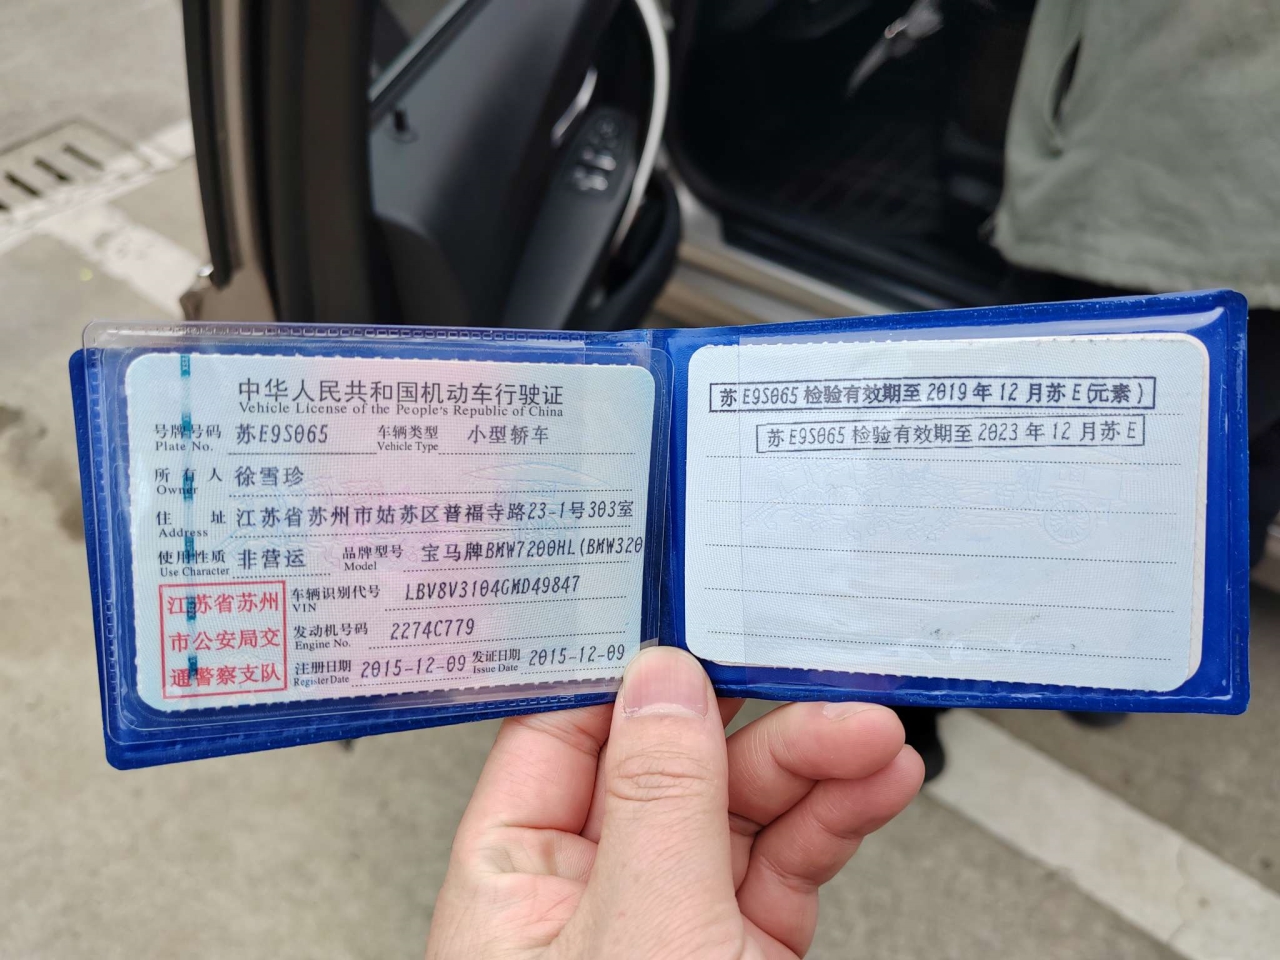 中华人民共和国机动车行驶证
Vehicle License of the People's Republic of China
号牌号码 苏E9S065 车辆类型 小型轿车
Plate No. Vehicle Type
所有人 徐雪珍
Owner
住址 江苏省苏州市姑苏区普福寺路23-1号303室
Address
使用性质 非营运 品牌型号 宝马牌BMW7200HL(BMW320
Use Character Model
江苏省苏州
市公安局交
通警察支队
车辆识别代号 LBV8V3104GMD49847
VIN
发动机号码 2274C779
Engine No.
注册日期 2015-12-09 发证日期 2015-12-09
Register Date Issue Date
苏E9S065 检验有效期至 2019 年 12 月苏 E(元素)
苏E9S065 检验有效期至 2023 年 12 月苏 E